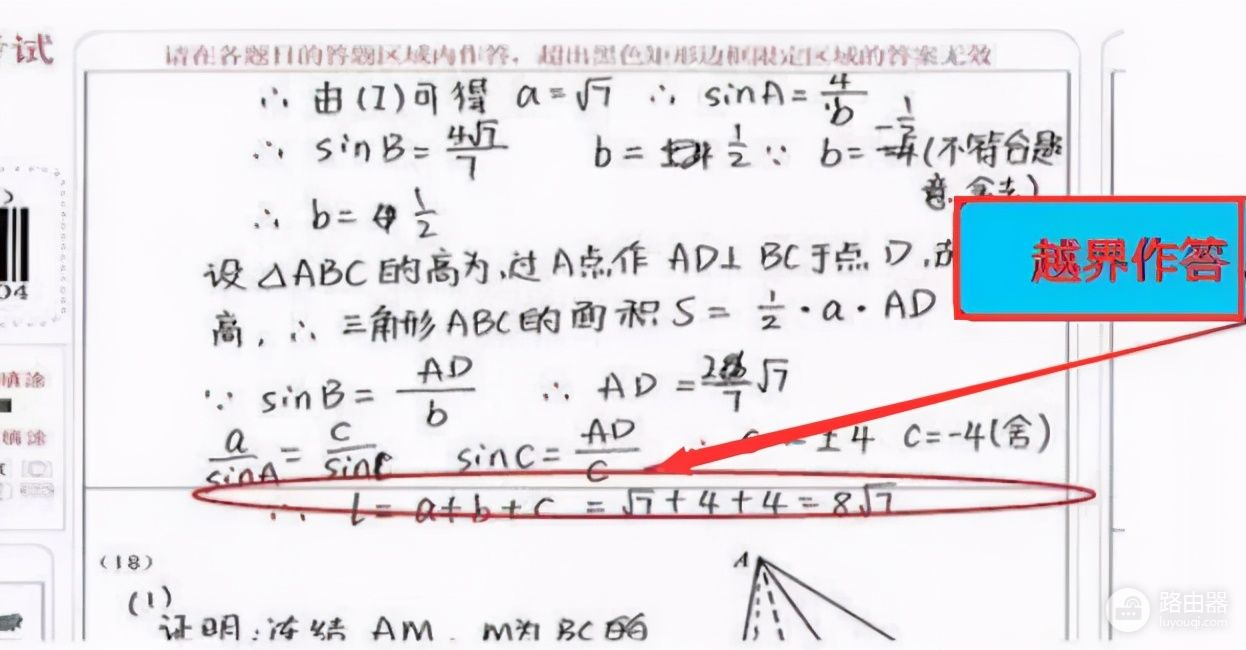 考试
请在各题目的答题区域内作答，超出黑色矩形边框限定区域的答案无效
∴ 由(I)可得 a=√7 ∴ sinA=4/b
∴ sinB=4√7/7 b= 1/2 ∵ b=-1/2(不符合题
意,舍去)
∴ b= 1/2
越界作答
设△ABC的高为,过A点作 AD⊥BC于点D,
高,∴三角形ABC的面积S=1/2·a·AD
04
填涂
∵ sinB=AD/b ∴ AD= /7 √7
填涂
a/sinA=c/sinC sinC=AD/c ∴ c=±4 c=-4(舍)
∴ l=a+b+c=√7+4+4=8√7
(18)
A
(1)
证明:连结 AM. M为BC的
路由器
luyouqi.com